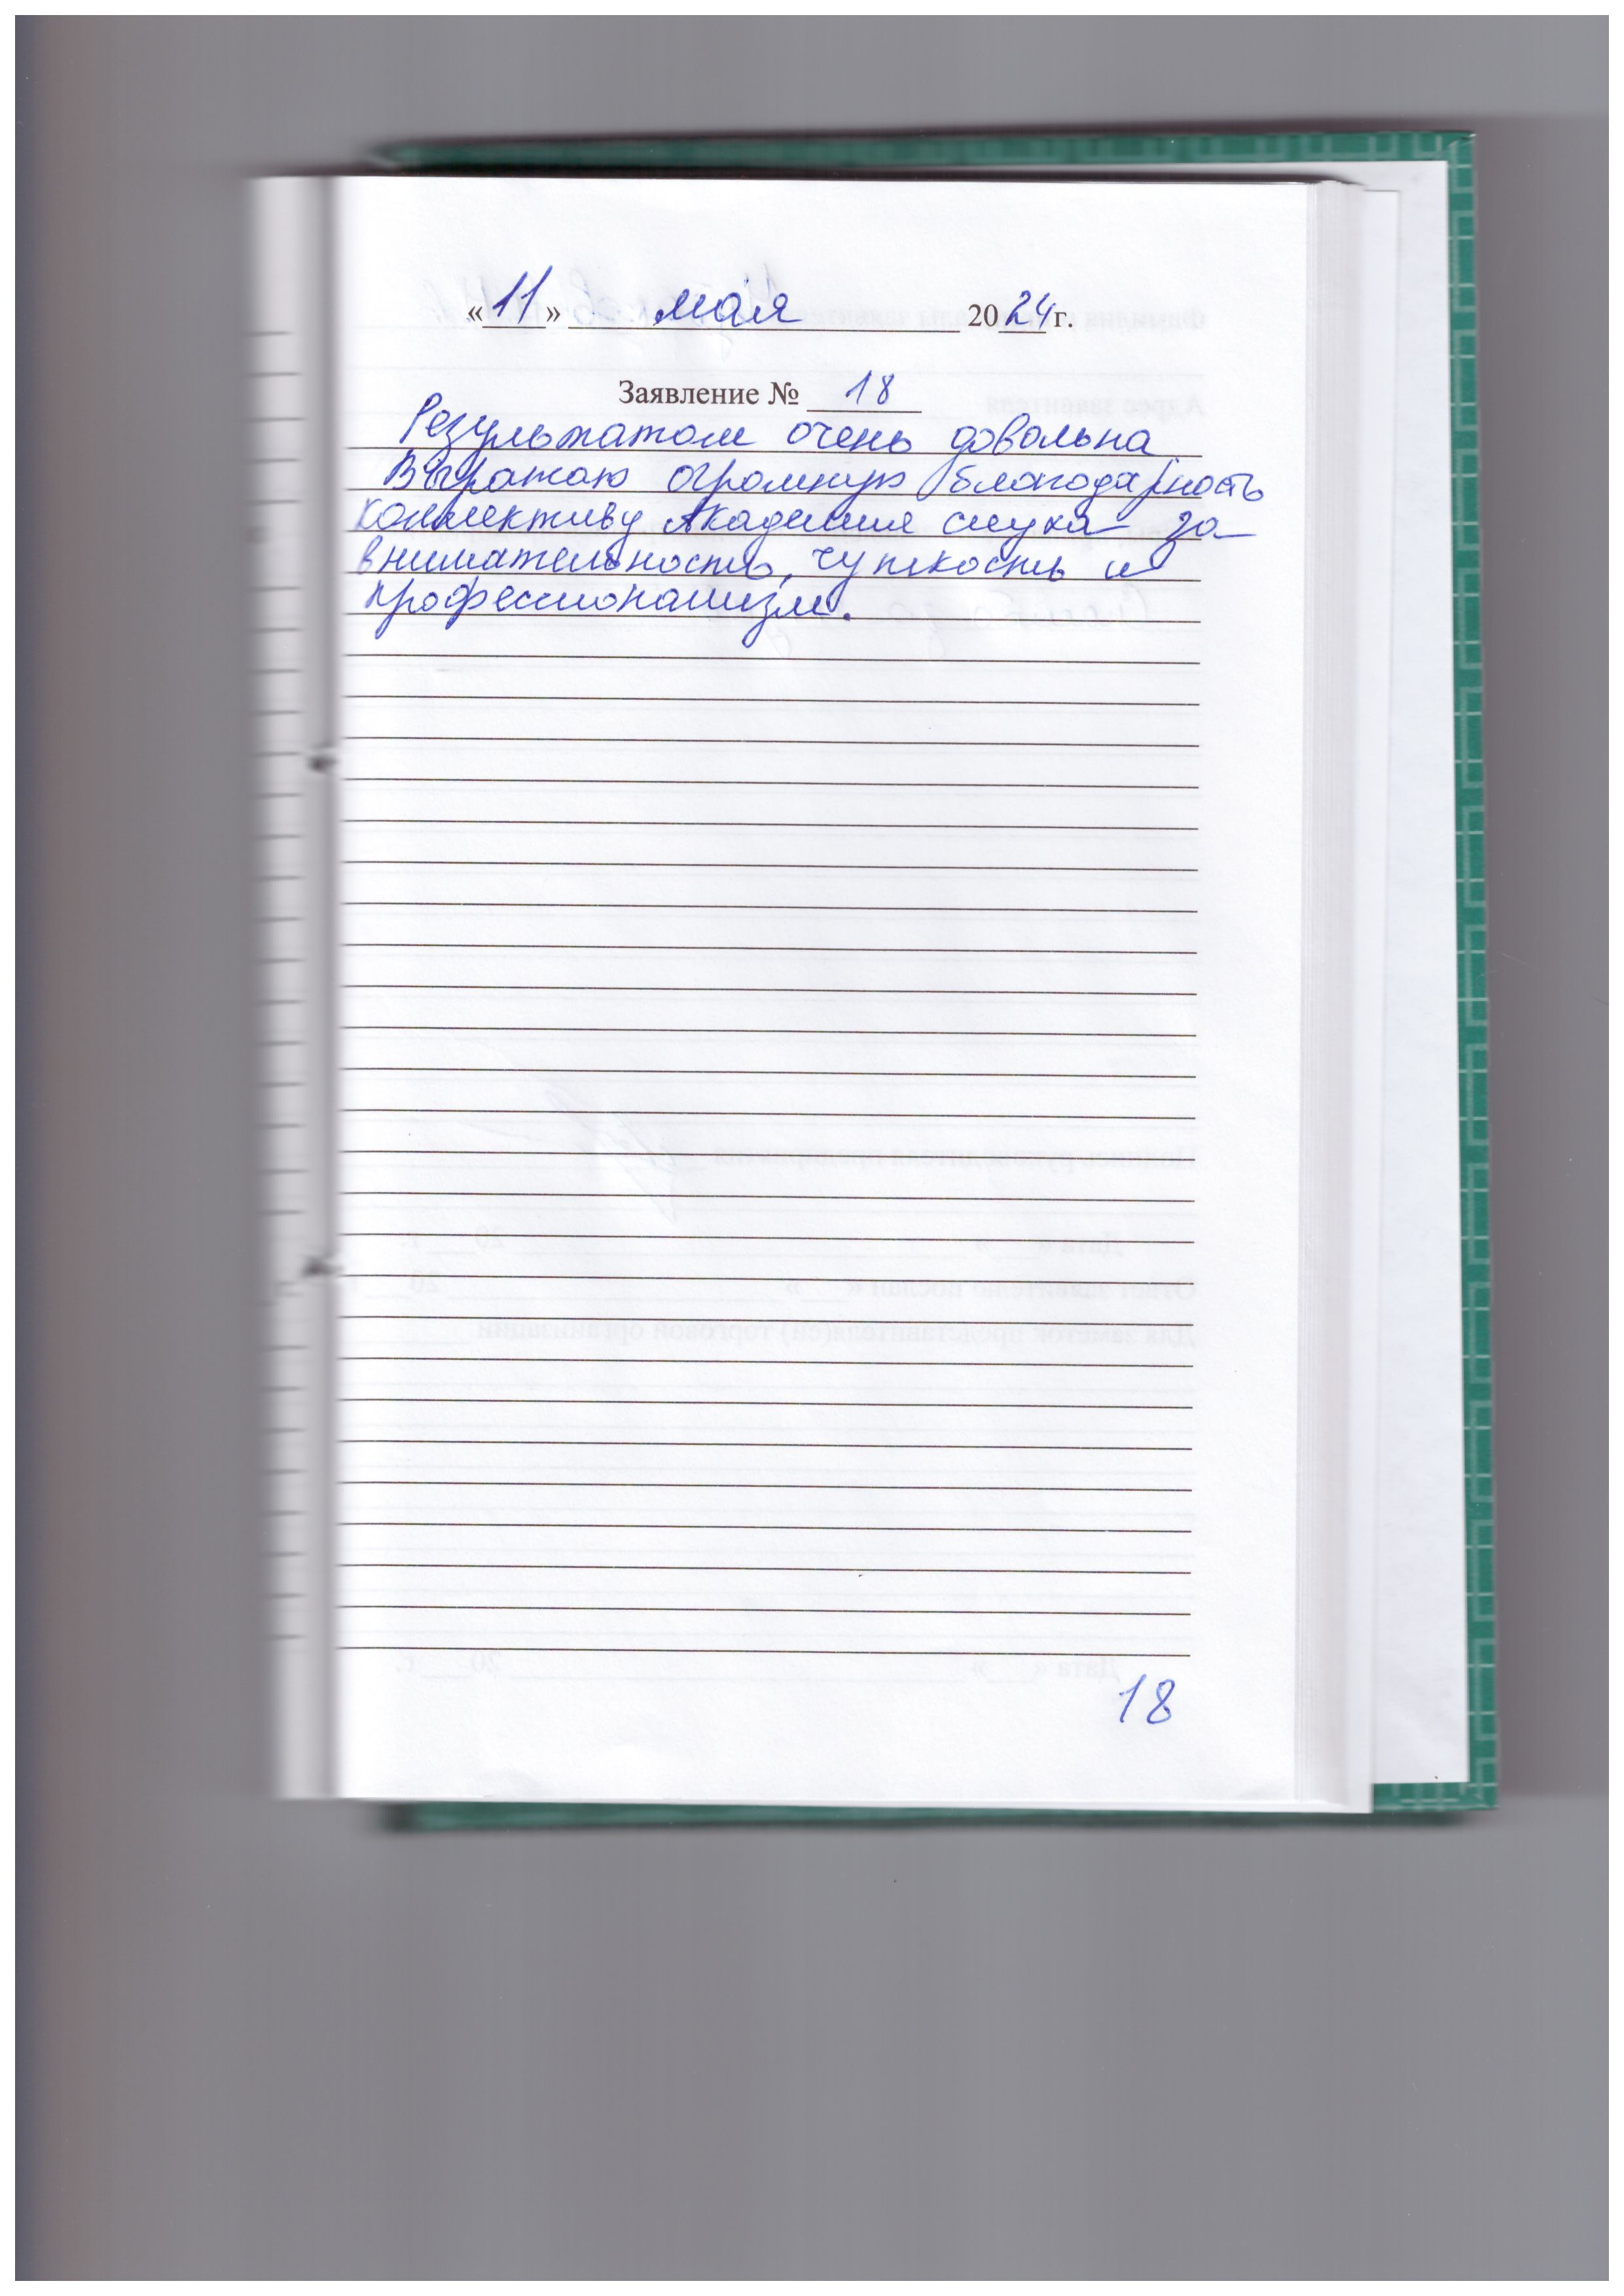 «11» мая 2024 г.
Заявление № 18
Результатом очень довольна
Выражаю огромную благодарность
коллективу Академия слуха за
внимательность, чуткость и
профессионализм.
18